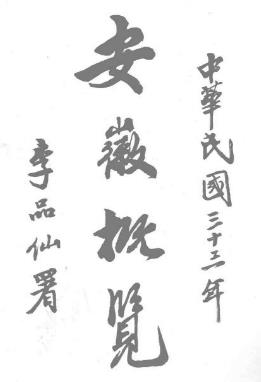 中華民國三十三年
安徽概覽
李品仙署